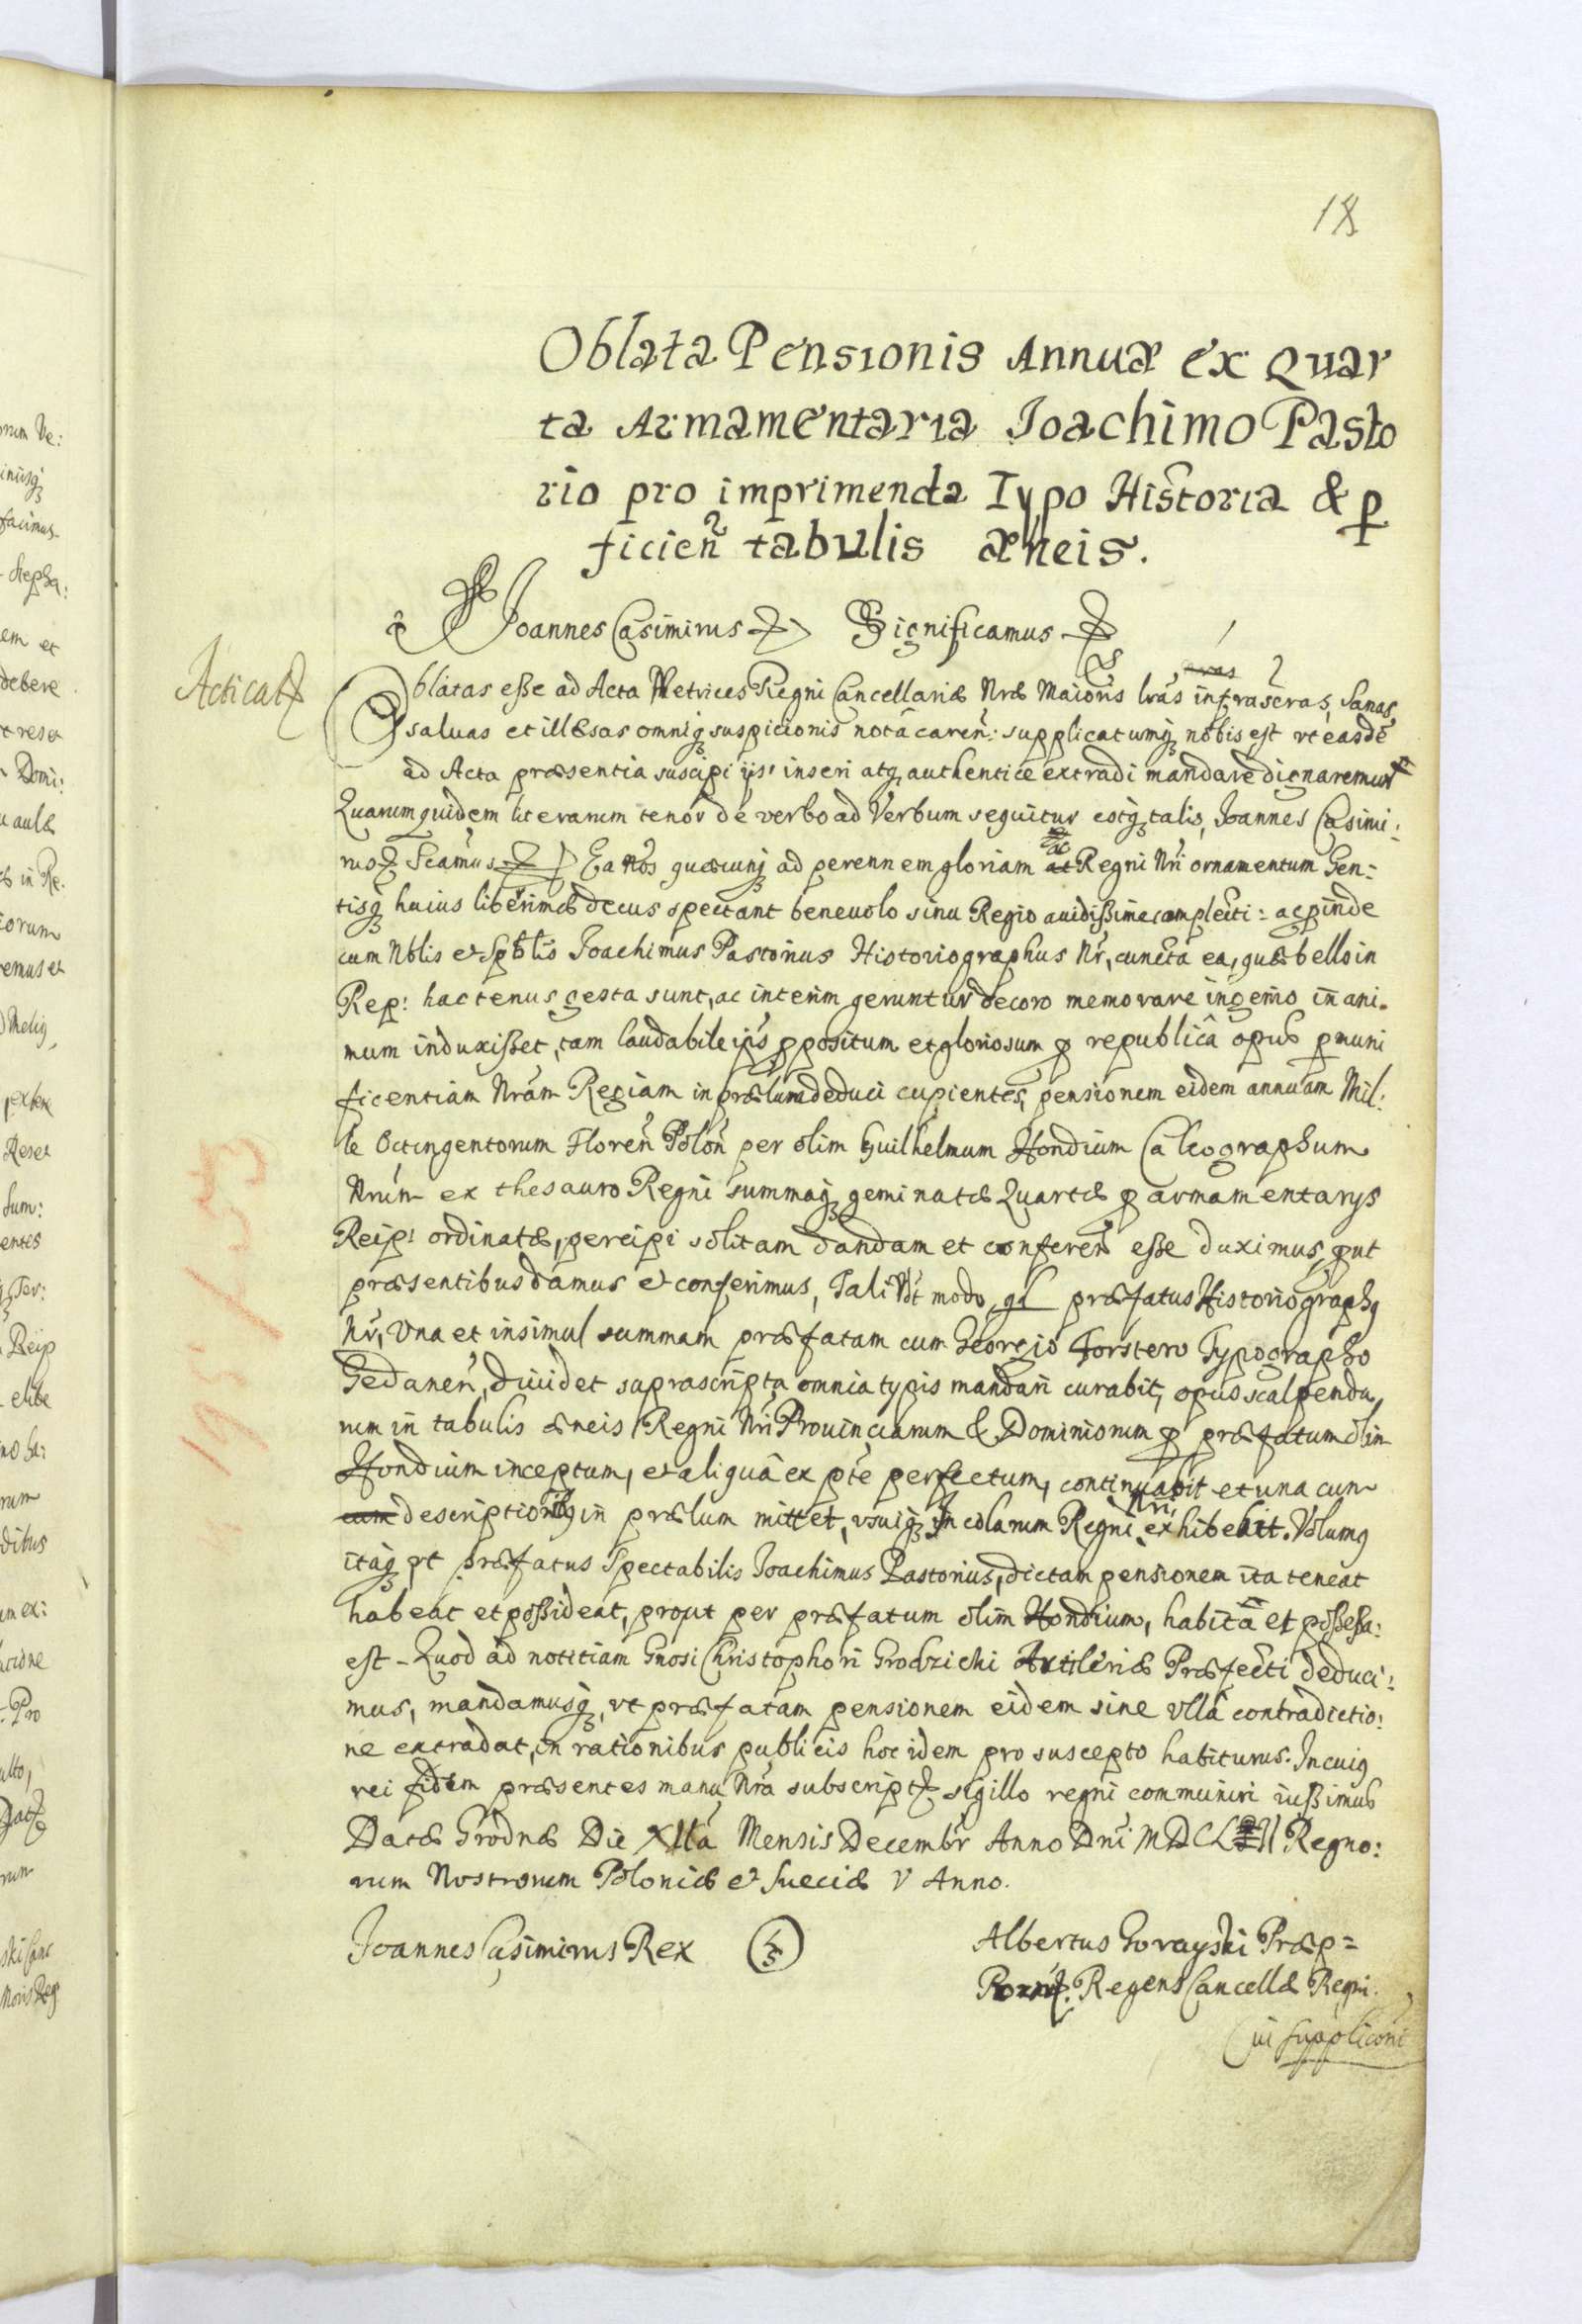 18
Oblata Pensionis Annuæ ex Quar
ta Armamentaria Joachimo Pasto
rio pro imprimenda Typo Historia & p
ficien tabulis æneis.
Joannes Casimirus Significamus
Acticat
Oblatas esse ad Acta Metrices Regni Cancellariæ Nræ Maioris lras infrascras, sanas
saluas et illæsas omniq suspicionis nota caren: supplicatumq nobis est vt easde
ad Acta præsentia suscipi ijs inseri atq authentice extradi mandare dignaremur
Quarum quidem literarum tenor de verbo ad Verbum sequitur estq talis, Joannes Casimi:
rus Scamus Ea Nos quæcunq ad perennem gloriam ac Regni Nri ornamentum Gen=
tisq huius liberimæ decus spectant beneuolo sinu Regio auidissime complecti: ac pinde
cum Nblis et Spblis Joachimus Pastorius Historiographus Nr, cuncta ea, quæ bello in
Rep: hactenus gesta sunt, ac interim geruntur decoro memorare ingenio in ani-
mum induxisset, tam laudabile ips ppositum et gloriosum p republica opus p muni
ficentiam Nram Regiam in prælum deduci cupientes, pensionem eidem annuam Mil:
le Octingentorum Floren Polon per olim Guilhelmum Hondium Calcographum
Nrum ex thesauro Regni summaq geminatæ Quartæ p armamentarys
Reip: ordinatæ, percipi solitam dandam et conferen esse duximus, put
præsentibus damus et conferimus, Tali Vdt modo, qd præfatus Historiographq
Nr, Vna et insimul summam præfatam cum Georgio Forstero Typographo
Gedanen, diuidet supra scripta omnia typis mandari curabit, opus scalpendu
rum in tabulis æneis Regni Nri Prouinciarum & Dominiorum p præfatum olim
Hondium inceptum, et aliqua ex pte perfectum, continuabit et una cum
cum descriptionibq in prælum mittet, vsuiq Incolarum Regni Nri exhibebit. Volumq
itaq vt præfatus Spectabilis Joachimus Pastorius, dictam pensionem ita teneat
habeat et possideat, prout per præfatum olim Hondium, habita et possessa:
est - Quod ad notitiam Gnosi Christophori Grodzicki Artileriæ Præfecti deduci:
mus, mandamusq, vt præfatam pensionem eidem sine vlla contradictio:
ne extradat, in rationibus publicis hoc idem pro suscepto habiturus. In cuiq
rei fidem præsentes manu Nra subscript sigillo regni communiri iussimus
Datæ Grodnæ Die XIIa Mensis Decembr Anno Dni MDCLII Regno:
rum Nostrorum Poloniæ et Sueciæ V Anno.
Joannes Casimirus Rex LS
Albertus Gorayski Præp=
Pozn. Regens Cancellæ Regni.
Cui suppliconi